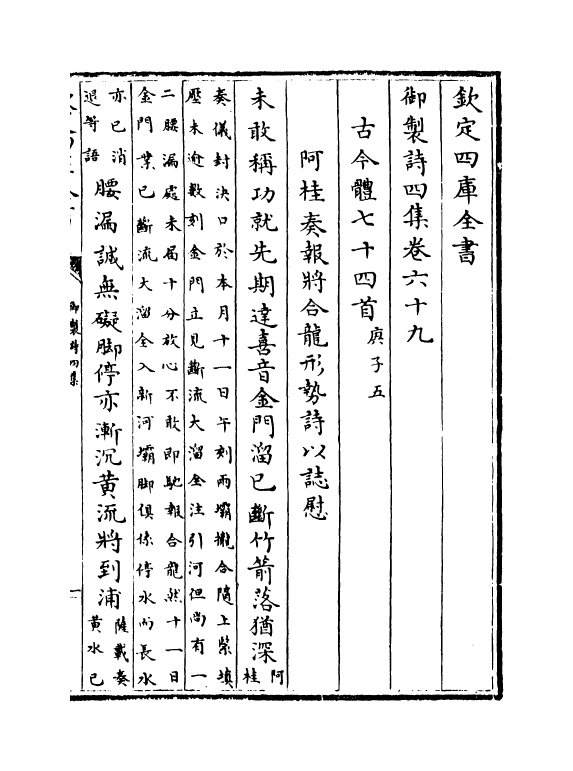 欽定四庫全書
御製詩四集卷六十九
古今體七十四首庚子五
阿桂奏報將合龍形勢詩以誌慰
未敢稱功就先期達喜音金門溜已斷竹箭落猶深阿桂
奏儀封決口於本月十一日午刻兩壩攏合隨上柴填
壓未逾數刻金門立見斷流大溜全注引河但尚有一
二腰漏處未屆十分放心不敢即馳報合龍然十一日
金門業已斷流大溜全入新河壩脚俱係停水而長水
亦已消
退等語
腰漏誠無礙脚停亦漸沉黃流將到浦薩載奏
黃水已
御製詩四集
一